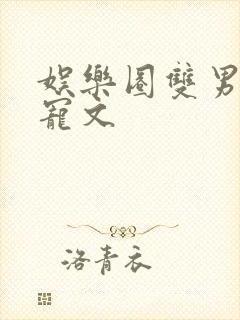 娛樂圈雙男
寵文
洛青衣